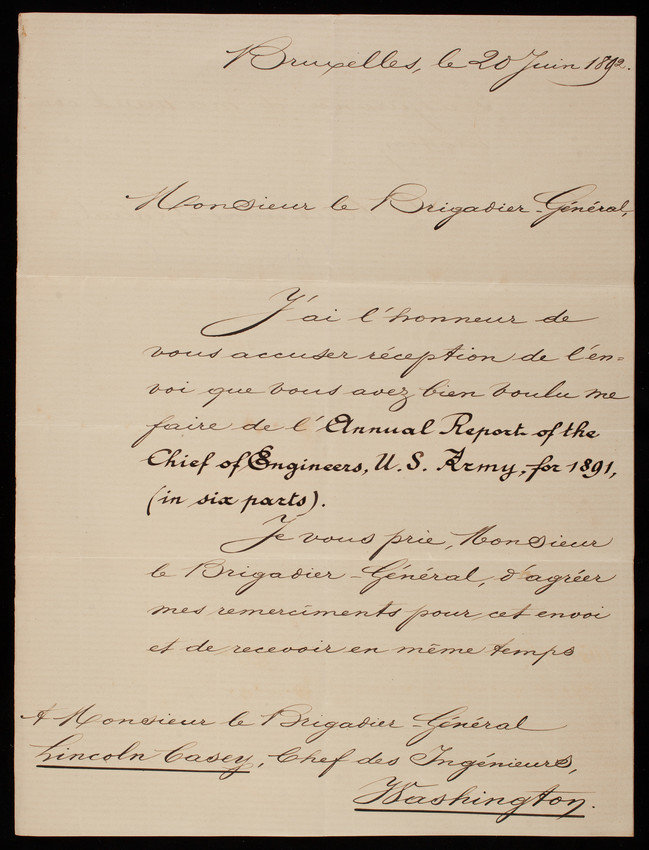 Bruxelles, le 20 Juin 1892.
Monsieur le Brigadier-Général,
J'ai l'honneur de
vous accuser réception de l'en=
voi que vous avez bien voulu me
faire de l'Annual Report of the
Chief of Engineers, U. S. Army, for 1891,
(in six parts).
Je vous prie, Monsieur
le Brigadier-Général, d'agréer
mes remerciments pour cet envoi
et de recevoir en même temps
A Monsieur le Brigadier-Général
Lincoln Casey, Chef des Ingénieurs,
Washington.